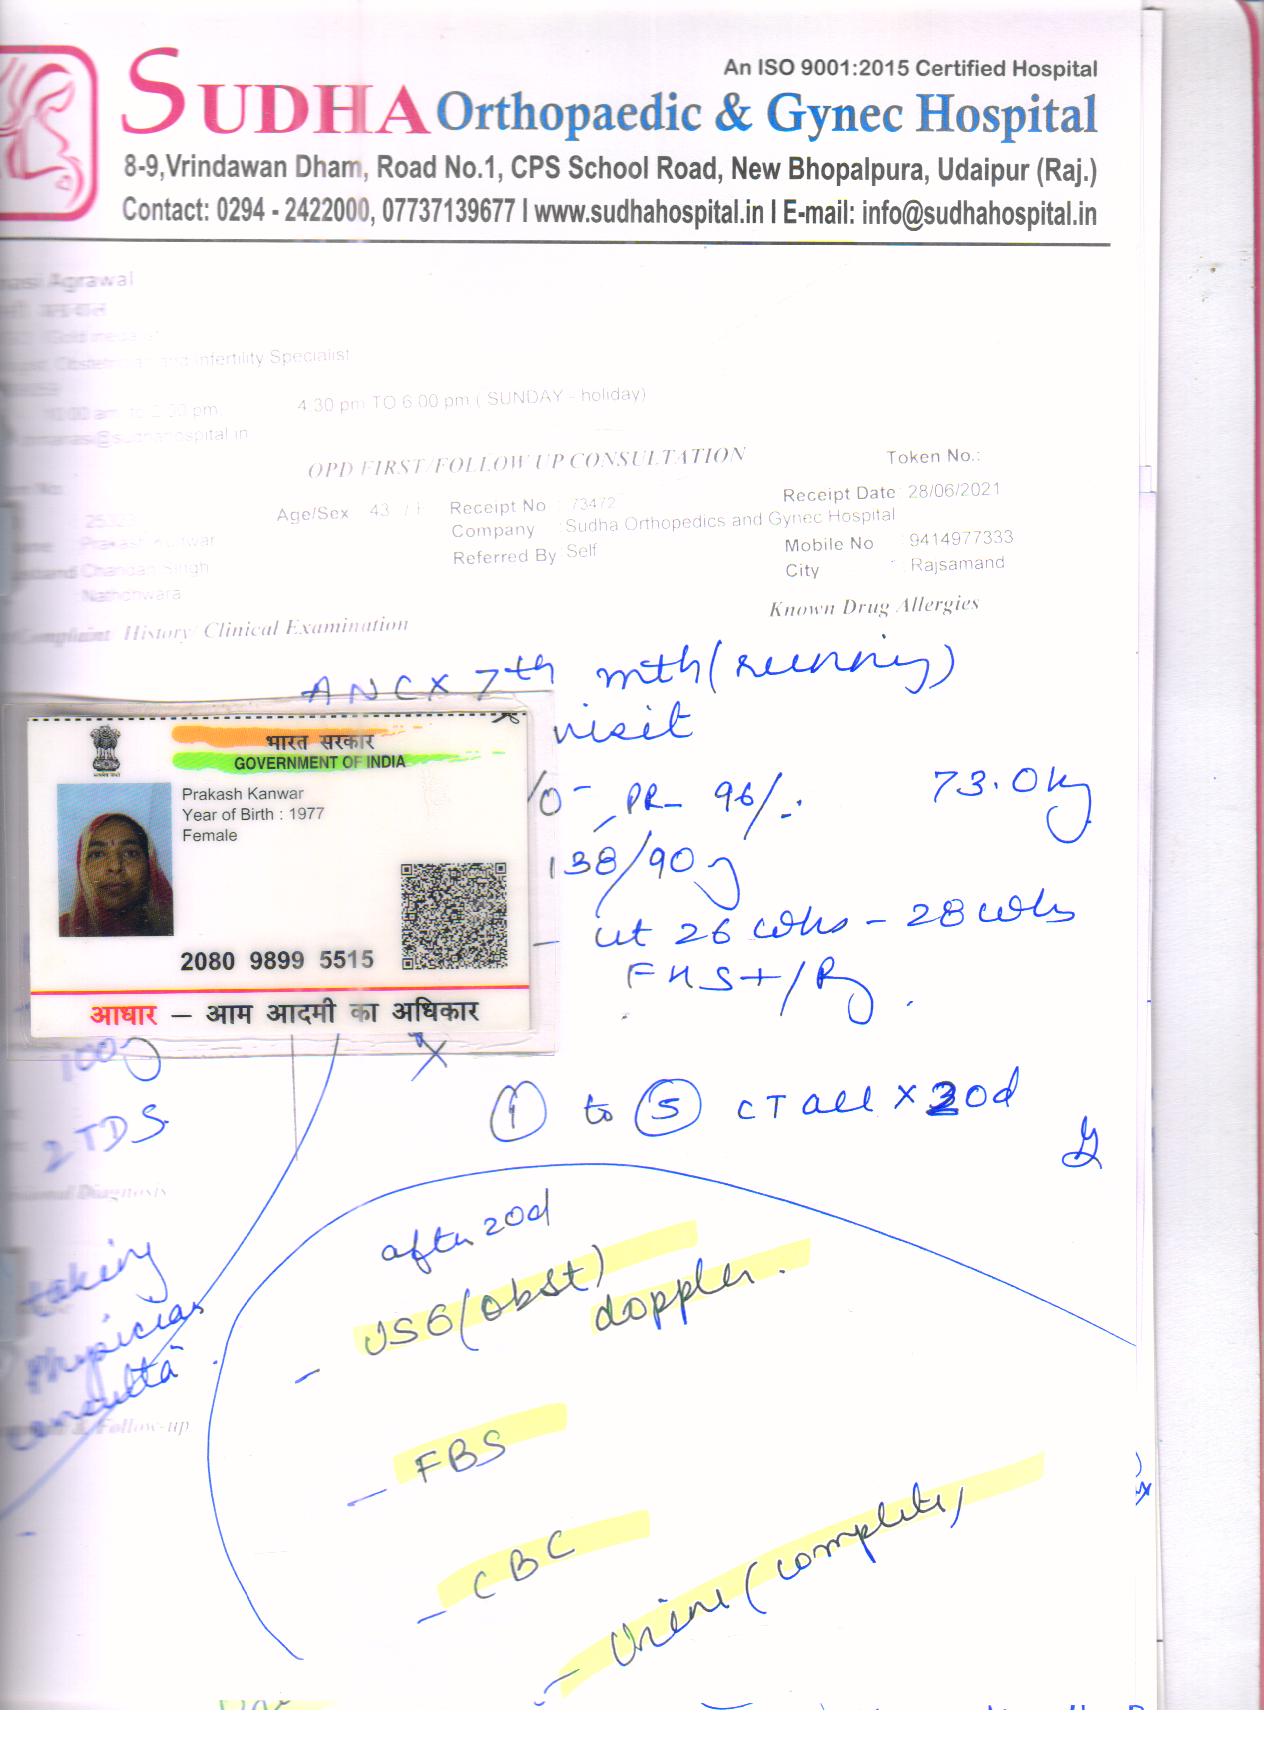 An ISO 9001:2015 Certified Hospital
SUDHA Orthopaedic & Gynec Hospital
8-9,Vrindawan Dham, Road No.1, CPS School Road, New Bhopalpura, Udaipur (Raj.)
Contact: 0294 - 2422000, 07737139677 I www.sudhahospital.in I E-mail: info@sudhahospital.in
Agrawal
Infertility Specialist
4:30 pm TO 6:00 pm ( SUNDAY - holiday)
@sudhahospital.in
OPD FIRST/FOLLOW UP CONSULTATION
Token No.:
Age/Sex 43 / F Receipt No : 73472 Receipt Date : 28/06/2021
Company : Sudha Orthopedics and Gynec Hospital
Referred By : Self Mobile No : 9414977333
City : Rajsamand
Chandan Singh
Nathdhwara
Known Drug Allergies
Complaint/ History/ Clinical Examination
ANCX 7th mth (running)
visit
PR- 96/. 73.0 kg
138/90
ut 26 wks - 28 wks
FHS+/R
भारत सरकार
GOVERNMENT OF INDIA
Prakash Kanwar
Year of Birth : 1977
Female
2080 9899 5515
आधार — आम आदमी का अधिकार
100
2 TDS
① to ⑤ CT all x 20d
Diagnosis
taking
physician
after 20d
- USG (obst) doppler.
& Follow-up
- FBS
- CBC
- Urine (complete)